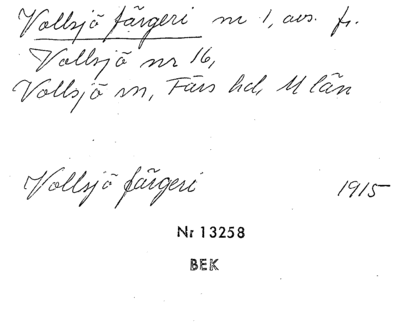 Vollsjö färgeri nr 1, avs. fr.
Vollsjö nr 16,
Vollsjö sn, Färs hd, M län
Vollsjö färgeri 1915
Nr 13258
BEK